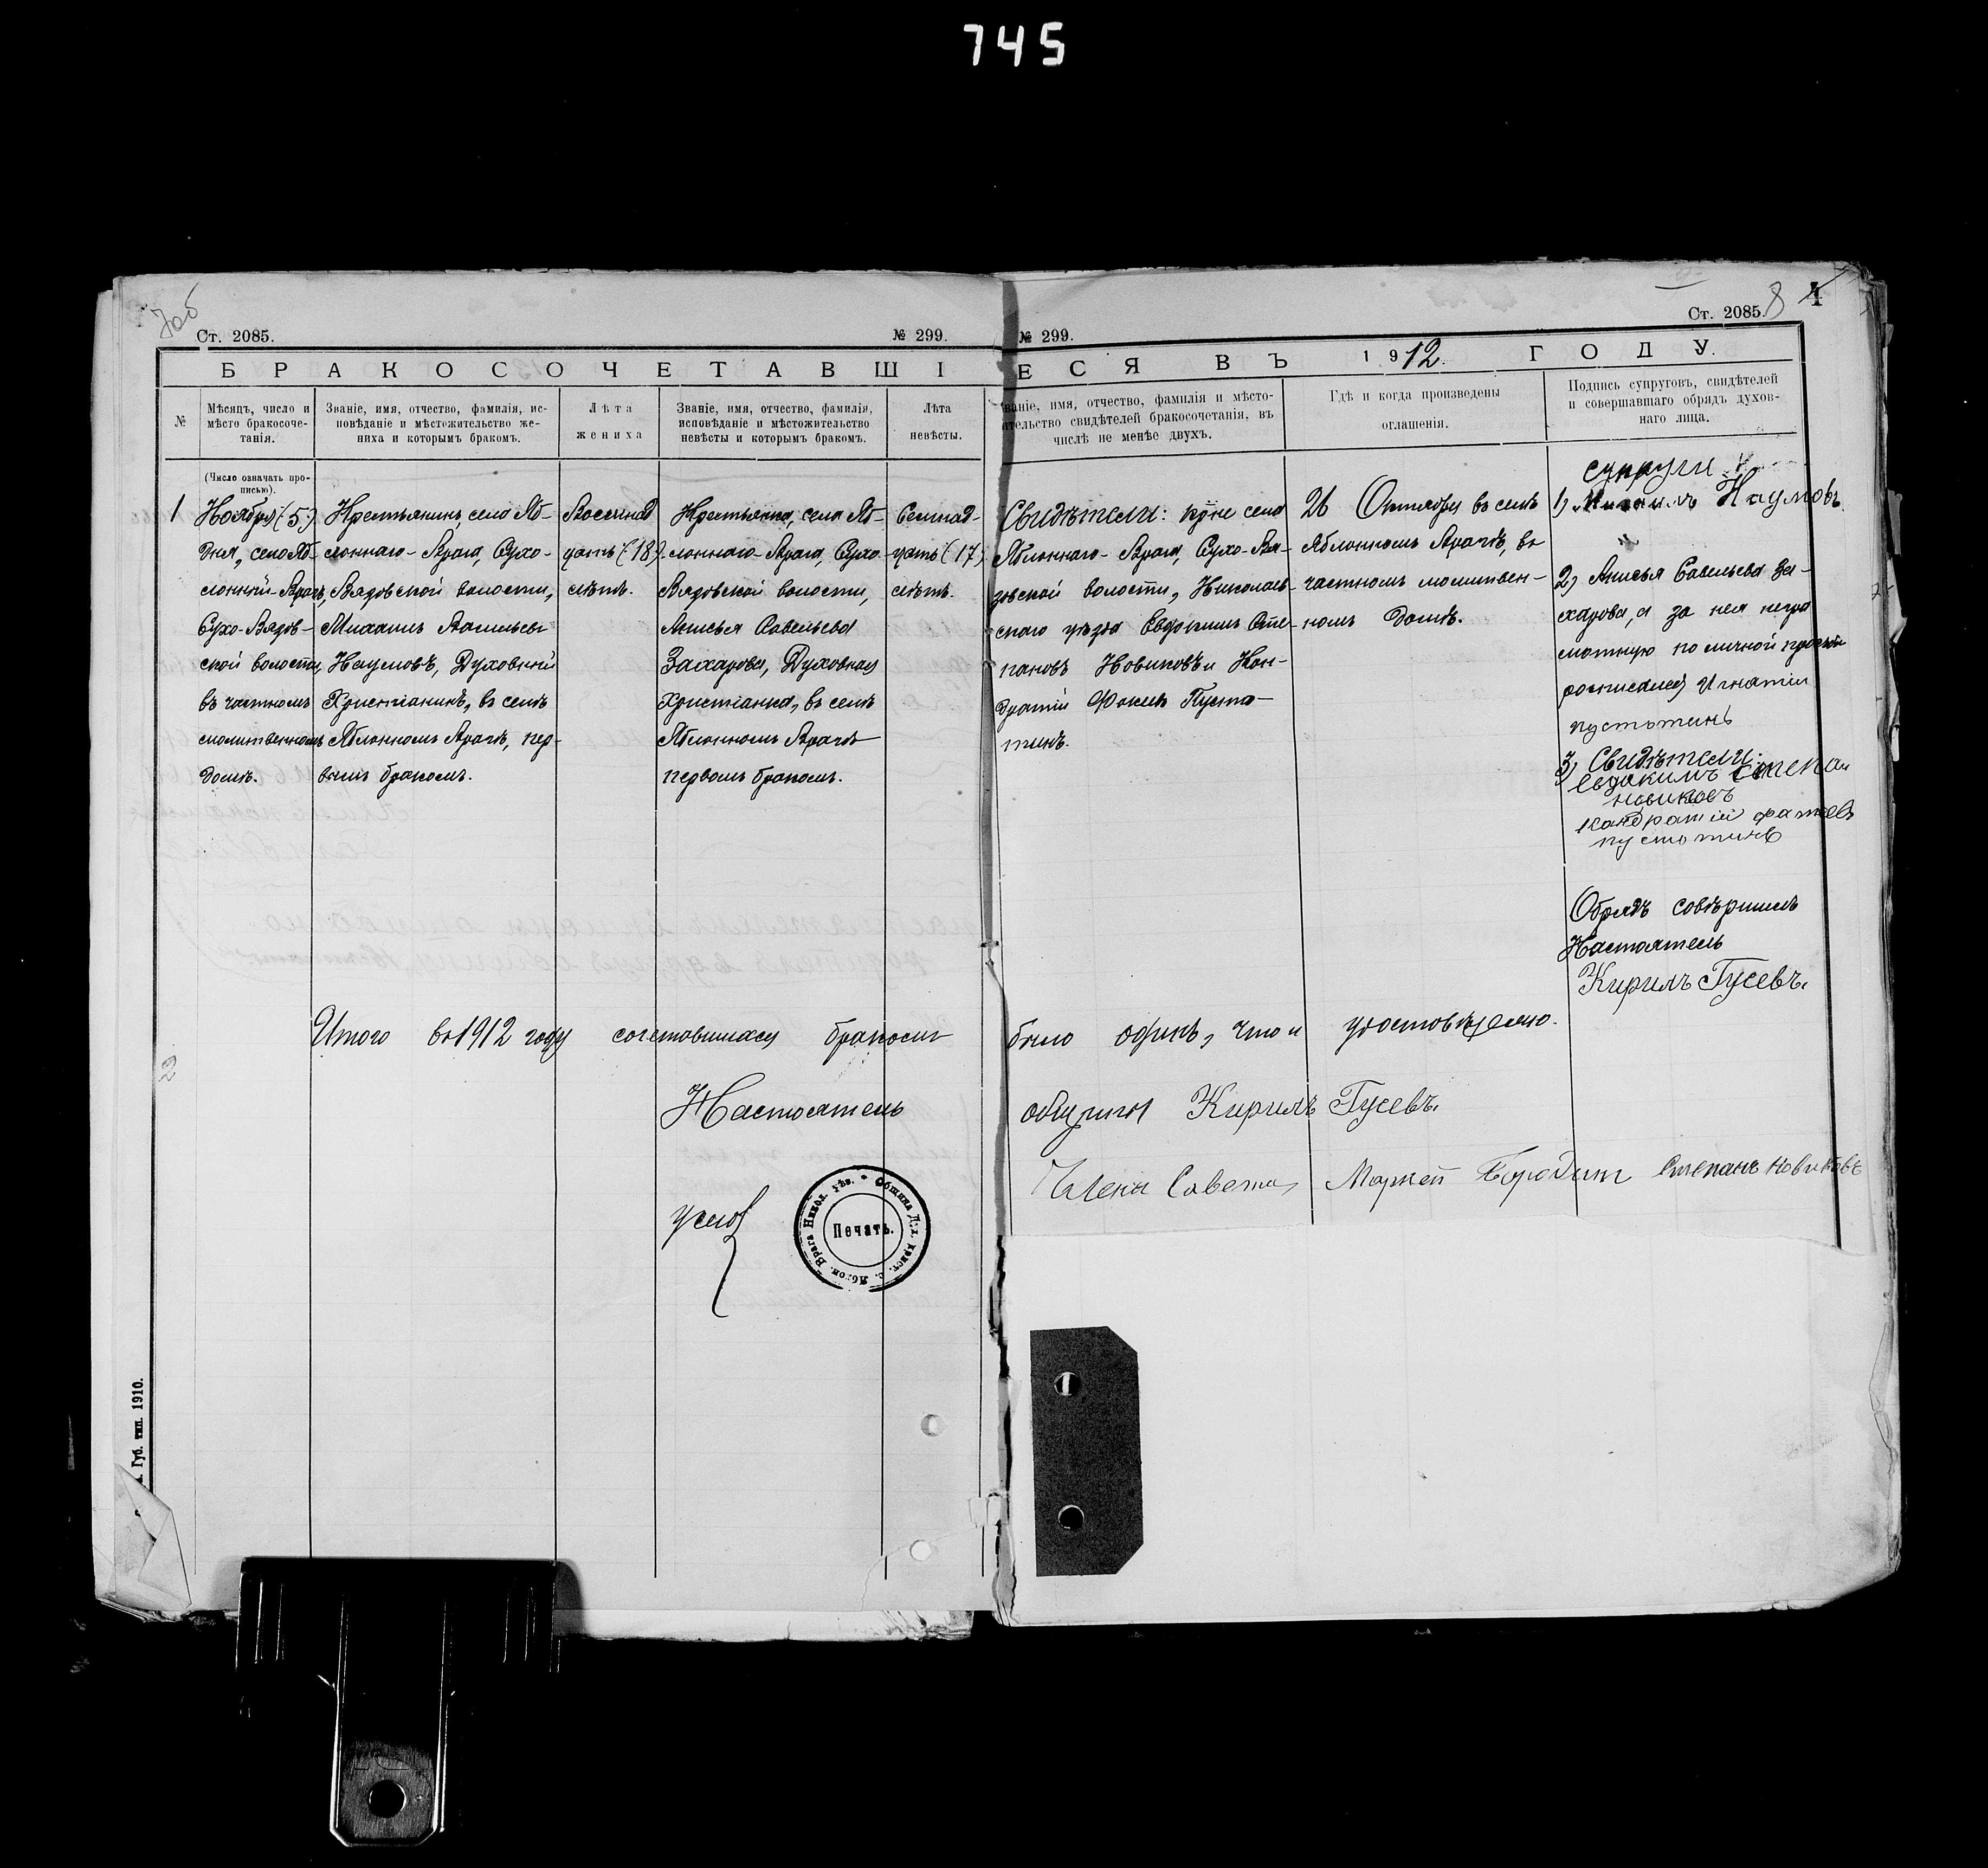 745
7об
Ст. 2085.
№ 299.
№ 299.
Ст. 2085.
8
4
БРАКОСОЧЕТАВШІ
ЕСЯ ВЪ 1912 ГОДУ.
№
Мѣсяцъ, число и
мѣсто бракосоче-
танія.
Званіе, имя, отчество, фамилія, ис-
повѣданіе и мѣстожительство же-
ниха и которымъ бракомъ.
Лѣта
жениха
Званіе, имя, отчество, фамилія,
исповѣданіе и мѣстожительство
невѣсты и которымъ бракомъ.
Лѣта
невѣсты.
Званіе, имя, отчество, фамилія и мѣсто-
жительство свидѣтелей бракосочетанія, въ
числѣ не менѣе двухъ.
Гдѣ и когда произведены
оглашенія.
Подпись супруговъ, свидѣтелей
и совершавшаго обрядъ духов-
наго лица.
(Число означать про-
писью).
1
Ноября (5)
дня, село Яб-
лонный-Врагъ,
Сухо-Вязов-
ской волости,
въ частномъ
молитвенномъ
домѣ.
Крестьянинъ, села Яб-
лоннаго-Врага, Сухо-
Вязовской волости,
Михаилъ Васильевъ
Наумовъ, Духовный
Христіанинъ, въ селѣ
Яблонномъ Врагѣ, пер-
вымъ бракомъ.
Восемнад
цать (18)
лѣтъ.
Крестьянка, села Яб-
лоннаго-Врага, Сухо-
Вязовской волости,
Анисья Савельева
Захарова, Духовная
Христіанка, въ селѣ
Яблонномъ Врагѣ
первымъ бракомъ.
Семнад-
цать (17)
лѣтъ.
Свидѣтели: кр-не села
Яблоннаго-Врага, Сухо-Вя-
зовской волости, Николаев-
скаго уѣзда Евдокимъ Сте-
пановъ Новиковъ и Кон-
дратій Фокинъ Пусто-
тинъ.
26 Октября въ селѣ
Яблонномъ Врагѣ, въ
частномъ молитвен-
номъ домѣ.
супруги
1) Михаилъ Наумовъ
2) Анисья Савельева За-
харова, а за нея негра
мотную по личной просьбѣ
росписался Игнатій
пустотинъ
3) Свидѣтели:
Евдакимъ Степан
новиковъ
Кандратій
пустотинъ
Обрядъ совѣршилъ
Настоятель
Кирилъ Гусевъ.
Итого въ 1912 году сочетавшихся бракомъ
было одинъ, что и удостовѣряю.
Настоятель
общины Кирилъ Гусевъ.
Члены Совета, Маркей Бородин Степанъ Новиковъ
Печать.
2
Губ. тип. 1910.